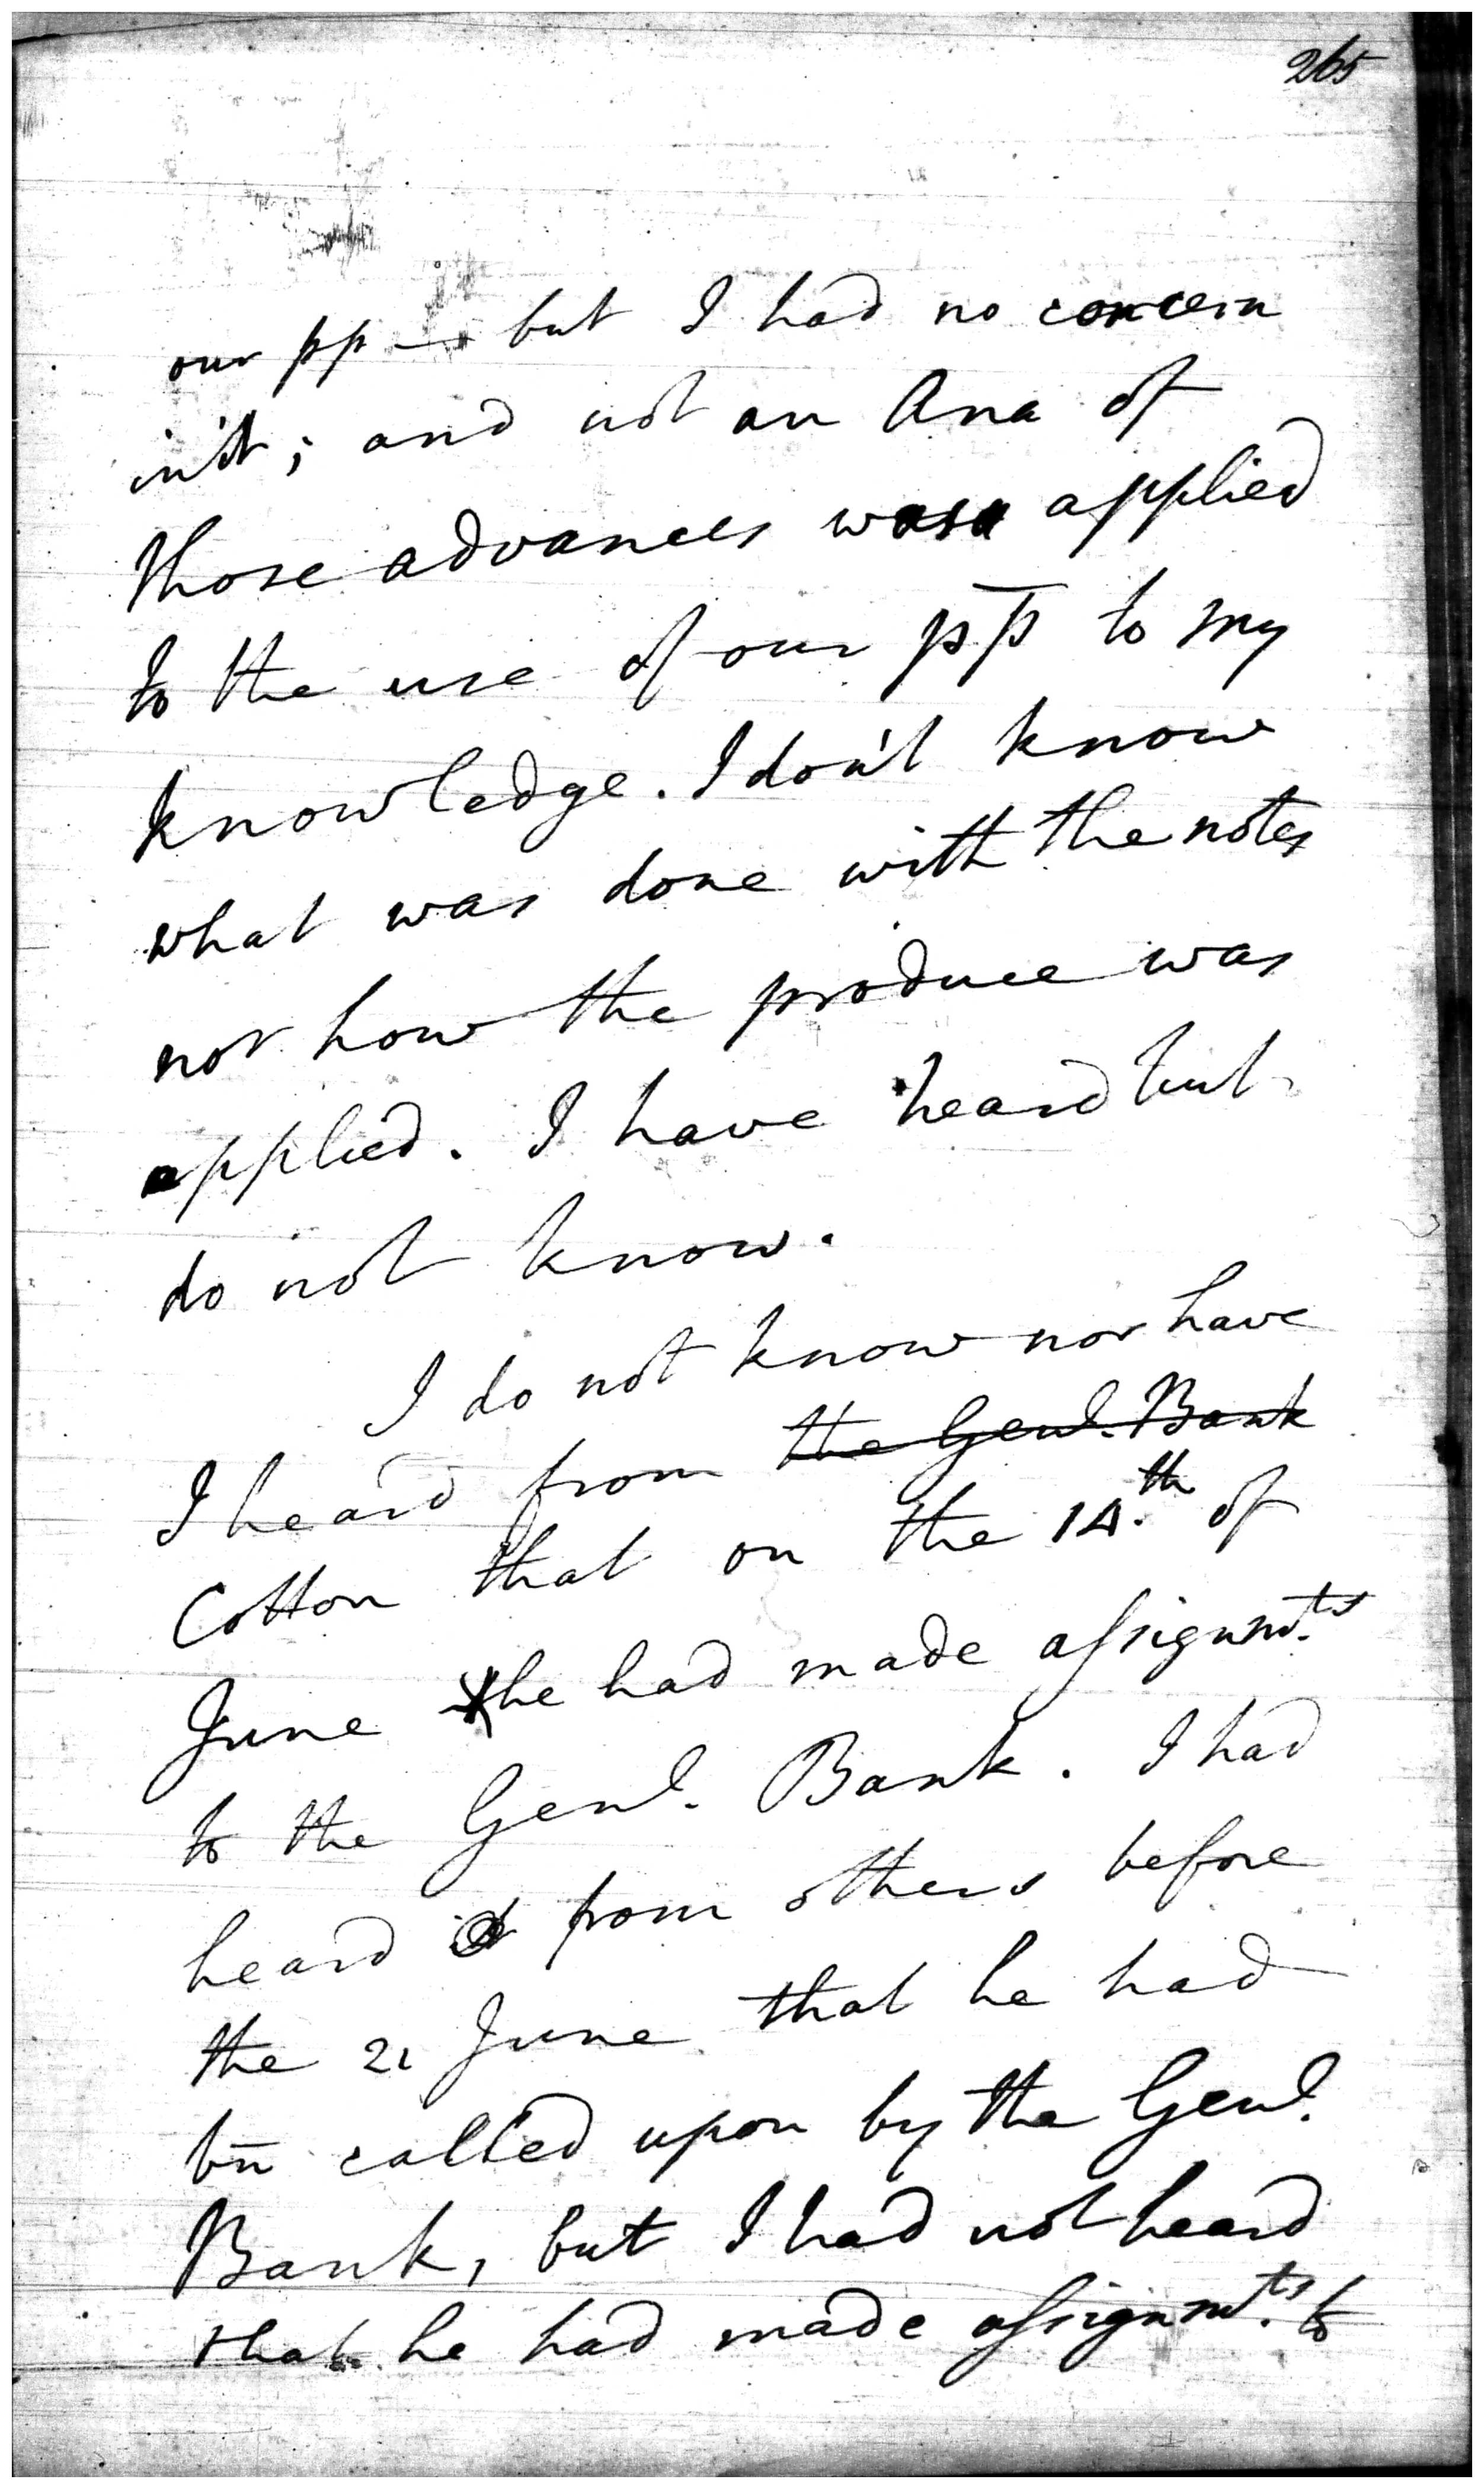 265
our pp — but I had no concern
in it; and not an Ana of
those advances was applied
to the use of our pp to my
knowledge. I don't know
what was done with the notes
nor how the produce was
applied. I have heard but
do not know.
I do not know nor have
I heard from the Genl. Bank
Cotton that on the 14.th of
June he had made assignmts.
to the Genl. Bank. I had
heard it from others before
the 21 June that he had
bn called upon by the Genl.
Bank, but I had not heard
that he had made assignmts. to